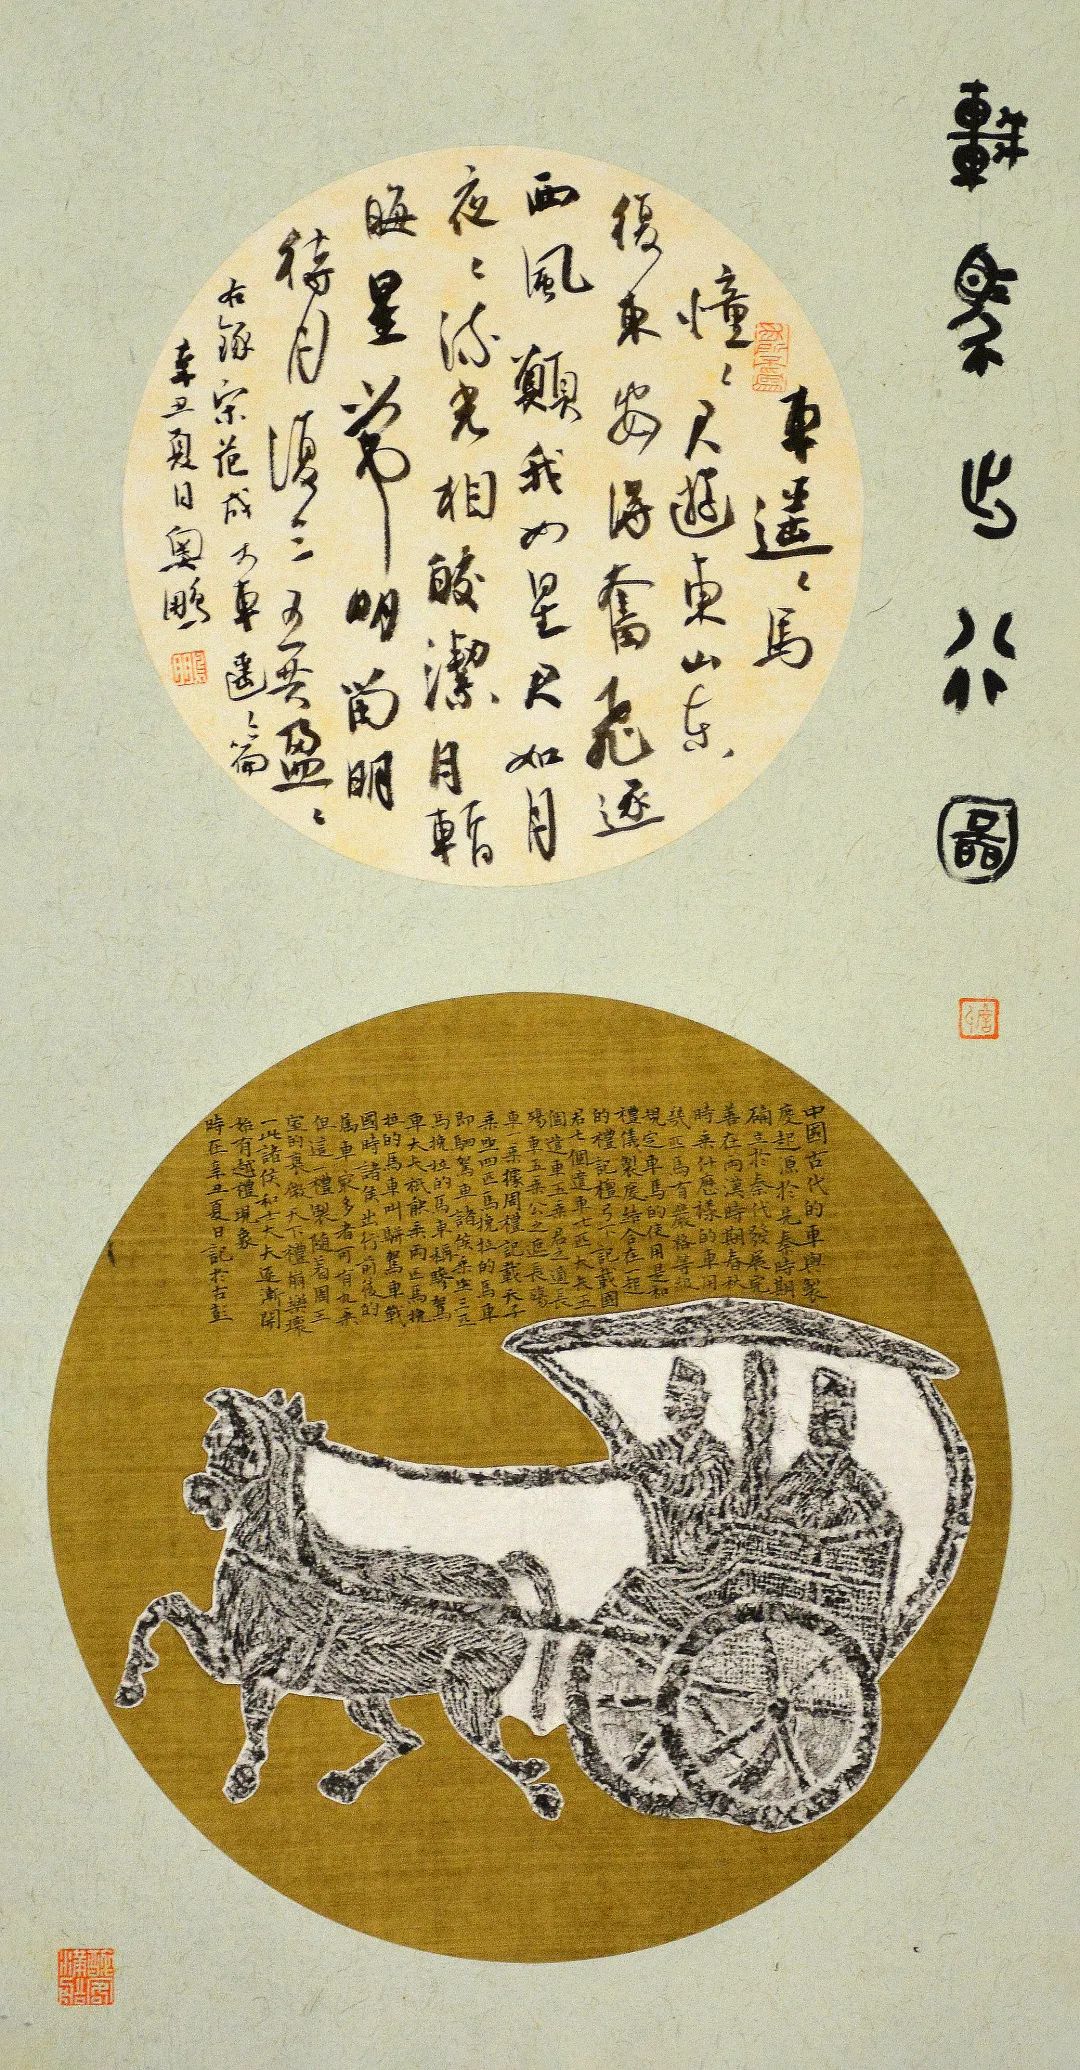 車馬出行圖
車遙〻馬
憧〻君遊東山東
復東安得奮飛逐
西風願我如星君如月
夜〻流光相皎潔月暫
晦星常明留明
待月復三五共盈〻
右錄宋范成大車遙〻篇
辛丑夏日奧鵬
中國古代的車輿製
度起源於先秦時期
確立於秦代發展完
善在兩漢時期春秋
時乘什麽樣的車用
幾匹馬有嚴格等級
規定車馬的使用是和
禮儀製度結合在一起
的禮記禮弓下記載國
君七個遣車七匹大夫五
個遣車五乘君之適長
殤車五乘公之庶長殤
車一乘據周禮記載天子
乘坐四匹馬挽拉的馬車
即駟駕車諸侯乘坐三匹
馬挽拉的馬車稱驂駕
車大夫祇能乘兩匹馬挽
拉的馬車叫駢駕車戰
國時諸侯出行前後的
屬車衆多者可有九乘
但這一禮製隨着周王
室的衰微天下禮崩樂壞
一些諸侯和士大夫逐漸開
始有越禮現象
時在辛丑夏日記於古彭